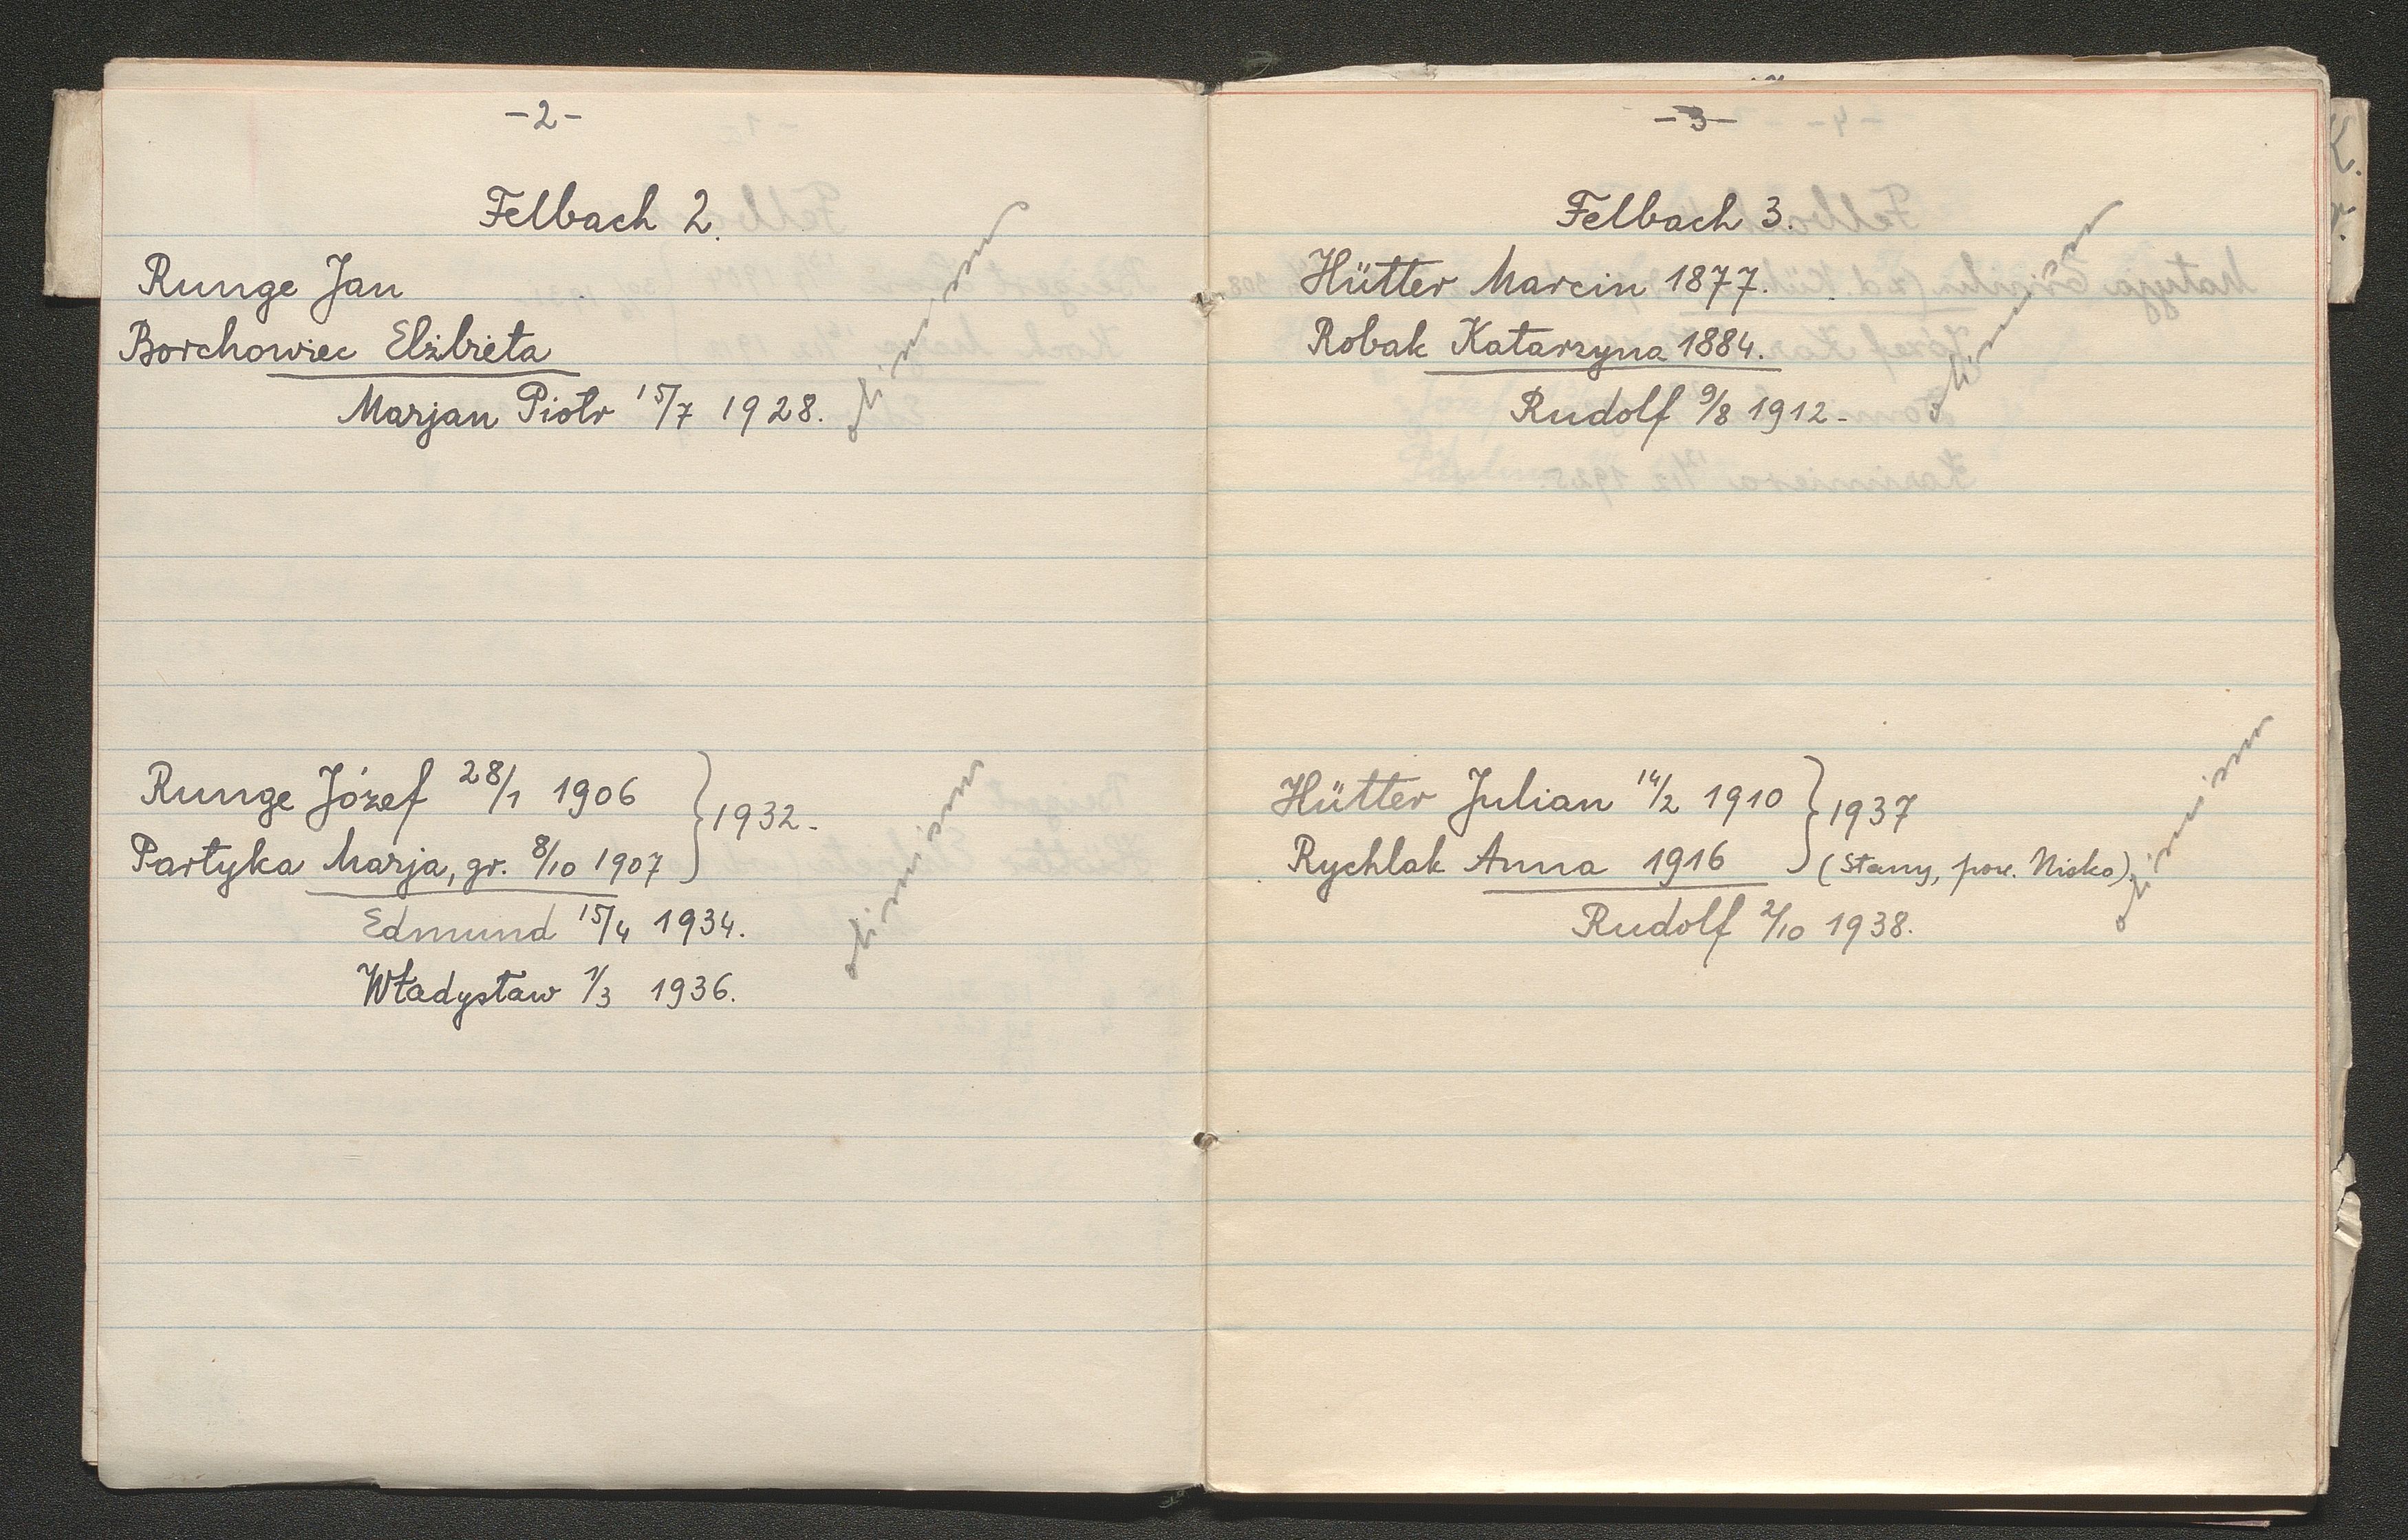 -2-
Felbach 2.
Runge Jan
Borchowiec Elżbieta
Marjan Piotr 15/7 1928.
Runge Józef 28/1 1906
}1932.
Partyka Marja, gr. 8/10 1907
Edmund 15/4 1934.
Władysław 1/3 1936.
-3-
Felbach 3.
Hütter Marcin 1877.
Robak Katarzyna 1884.
Rudolf 9/8 1912.
Hütter Julian 14/2 1910
}1937
Rychlak Anna 1916
(Stany, pow. Nisko).
Rudolf 2/10 1938.